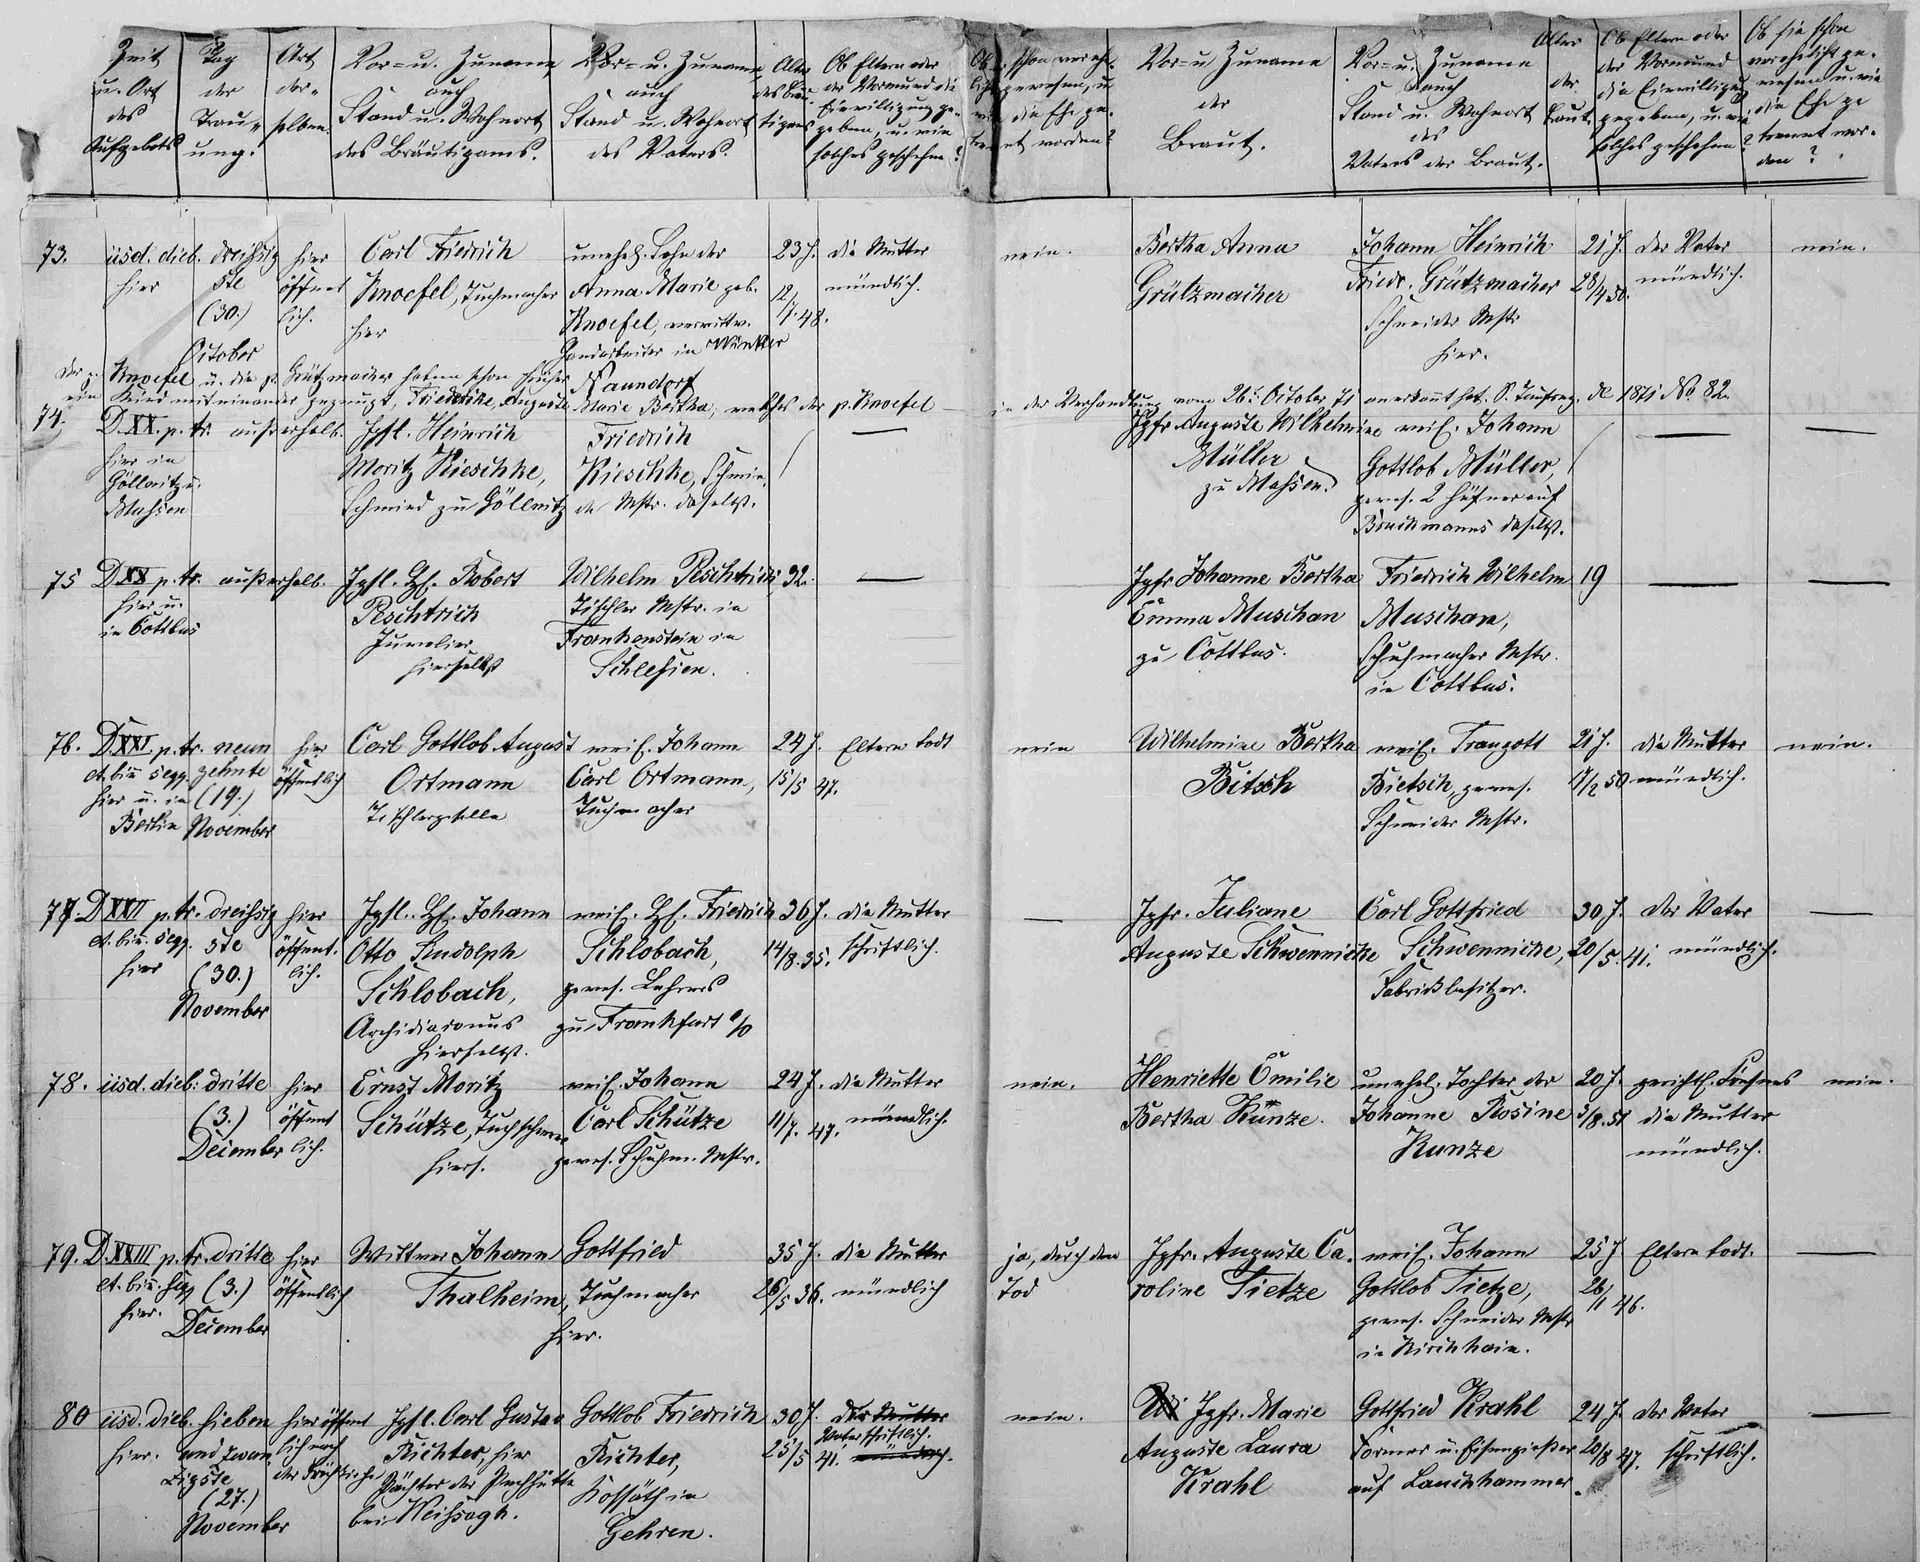 Zeit
u. Ort
des
Aufgebots
Tag
der
Trau-
ung.
Art
der-
selben.
Vor- u. Zuname
auch
Stand u. Wohnort
des Bräutigams.
Vor- u. Zuname
auch
Stand u. Wohnort
des Vaters.
Alter
des Bräu-
tigams
Ob Eltern oder
der Vormund die
Einwilligung ge-
geben, u. wie
solches geschehen?
Ob schon verehe-
licht gewesen, u.
wie die Ehe ge-
trennt worden?
Vor- u Zuname
der
Braut.
Vor- u. Zuname
auch
Stand u. Wohnort
des
Vaters der Braut.
Alter
der
Braut
Ob Eltern oder
der Vormund
die Einwilligung
gegeben, u. wie
solches geschehen?
Ob sie schon
verehelicht ge-
wesen u. wie
die Ehe ge
trennt wor-
den?
73.
iisd. dieb.
hier
dreißig
ste
(30.)
October
hier
öffent
lich.
Carl Friedrich
Knoefel, Tuchmacher
hier
unehel. Sohn der
Anna Marie geb.
Knoefel, verwittw.
Handarbeiter in Winkler
Naundorf
23 J.
12/7. 48.
die Mutter
mündlich.
nein.
Bertha Anna
Grützmacher
Johann Heinrich
Friedr. Grützmacher
Schneider Mstr
hier.
21 J.
28/4 50.
der Vater
mündlich.
nein.
der p. Knoefel u. die p. Grützmacher haben schon früher
ein Kind miteinander gezeugt, Friederike, Auguste Marie Bertha, welches der p. Knoefel –
in der Verhandlung vom 26. October 71 anerkannt hat. S. Taufreg. de 1871 No. 82.
74.
D. XX. p. tr.
hier in
Göllnitz u.
Massen
außerhalb.
Jgsl. Heinrich
Moritz Kieschke,
Schmied zu Göllnitz
Friedrich
Kieschke, Schmie-
de Mstr. daselbst.
Jgfr Auguste Wilhelmine
Müller
zu Massen.
weil. Johann
Gottlob Müller,
gewes. 2 Hüfner auf
Bruckmanns daselbst.
75
D XX p. tr.
hier u.
in Cottbus
außerhalb.
Jgsl. H. Robert
Peschtrich
Juwelier
hierselbst
Wilhelm Peschtrich
Tischler Mstr. in
Frankenstein in
Schlesien.
32.
Jgfr Johanne Bertha
Emma Muschan
zu Cottbus.
Friedrich Wilhelm
Muschan,
Schuhmacher Mstr.
in Cottbus.
19
76.
D. XXI. p. tr.
et. bin. seqq.
hier u. in
Berlin
neun
zehnte
(19.)
November
hier
öffentlich
Carl Gottlob August
Ortmann
Tischlergeselle
weil. Johann
Carl Ortmann,
Tuchmacher
24 J.
15/5 47.
Eltern todt
nein
Wilhelmine Bertha
Bitsch
weil. Traugott
Bietsch, gewes.
Schneider Mstr.
21 J.
17/2 50
die Mutter
mündlich.
nein.
77.
D XXII p. tr.
et. bin. seqq.
hier
dreißig
ste
(30.)
November
hier
öffent.
lich.
Jgsl. H. Johann
Otto Rudolph
Schlobach,
Archidiaconus
hierselbst.
weil. H. Friedrich
Schlobach,
gewes. Lehrers
zu Frankfurt a/O
36 J.
14/8. 35.
die Mutter
schriftlich.
Jgfr. Juliane
Auguste Schwennicke
Carl Gottfried
Schwennicke,
Fabrikbesitzer.
30 J.
20/5. 41.
der Vater
mündlich.
78.
iisd. dieb:
dritte
(3.)
December
hier
öffent
lich.
Ernst Moritz
Schütze, Tuchscheerer
hiers.
weil. Johann
Carl Schütze
gewes. Schuhm. Mstr.
24 J.
11/7. 47.
die Mutter
mündlich.
nein.
Henriette Emilie
Bertha Kunze.
unehel. Tochter der
Johanne Rosine
Kunze
20 J.
3/8. 51
gerichtl. Consens
die Mutter
mündlich.
nein.
79.
D. XXIII p. tr.
et. bin. seqq
hier.
dritte
(3.)
December
hier
öffentlich
Wittwer Johann
Thalheim,
Gottfried
Tuchmacher
hier.
35 J.
26/5 36.
die Mutter
mündlich
ja, durch den
Tod
Jgfr. Auguste Ca-
roline Tietze
weil. Johann
Gottlob Tietze,
gewes. Schneider Mstr
in Kirchhain.
25 J
26/1 46.
Eltern todt.
80
iisd. dieb.
hier.
sieben
und zwan
zigste
(27.)
November
hier öffent
lich nach
der Frühkirche
Jgsl. Carl Gustav
Richter, hier
Pächter der Pechhütte
bei Weißagk.
Gottlob Friedrich
Richter,
Kossäth in
Gehren.
30 J.
25/5 41.
der Mutter
Vater schriftlich.
mündlich.
nein.
Jgfr. Marie
Auguste Laura
Krahl
Gottfried Krahl
Former u. Eisengießer
auf Lauchhammer.
24 J.
20/8 47.
der Vater
schriftlich.